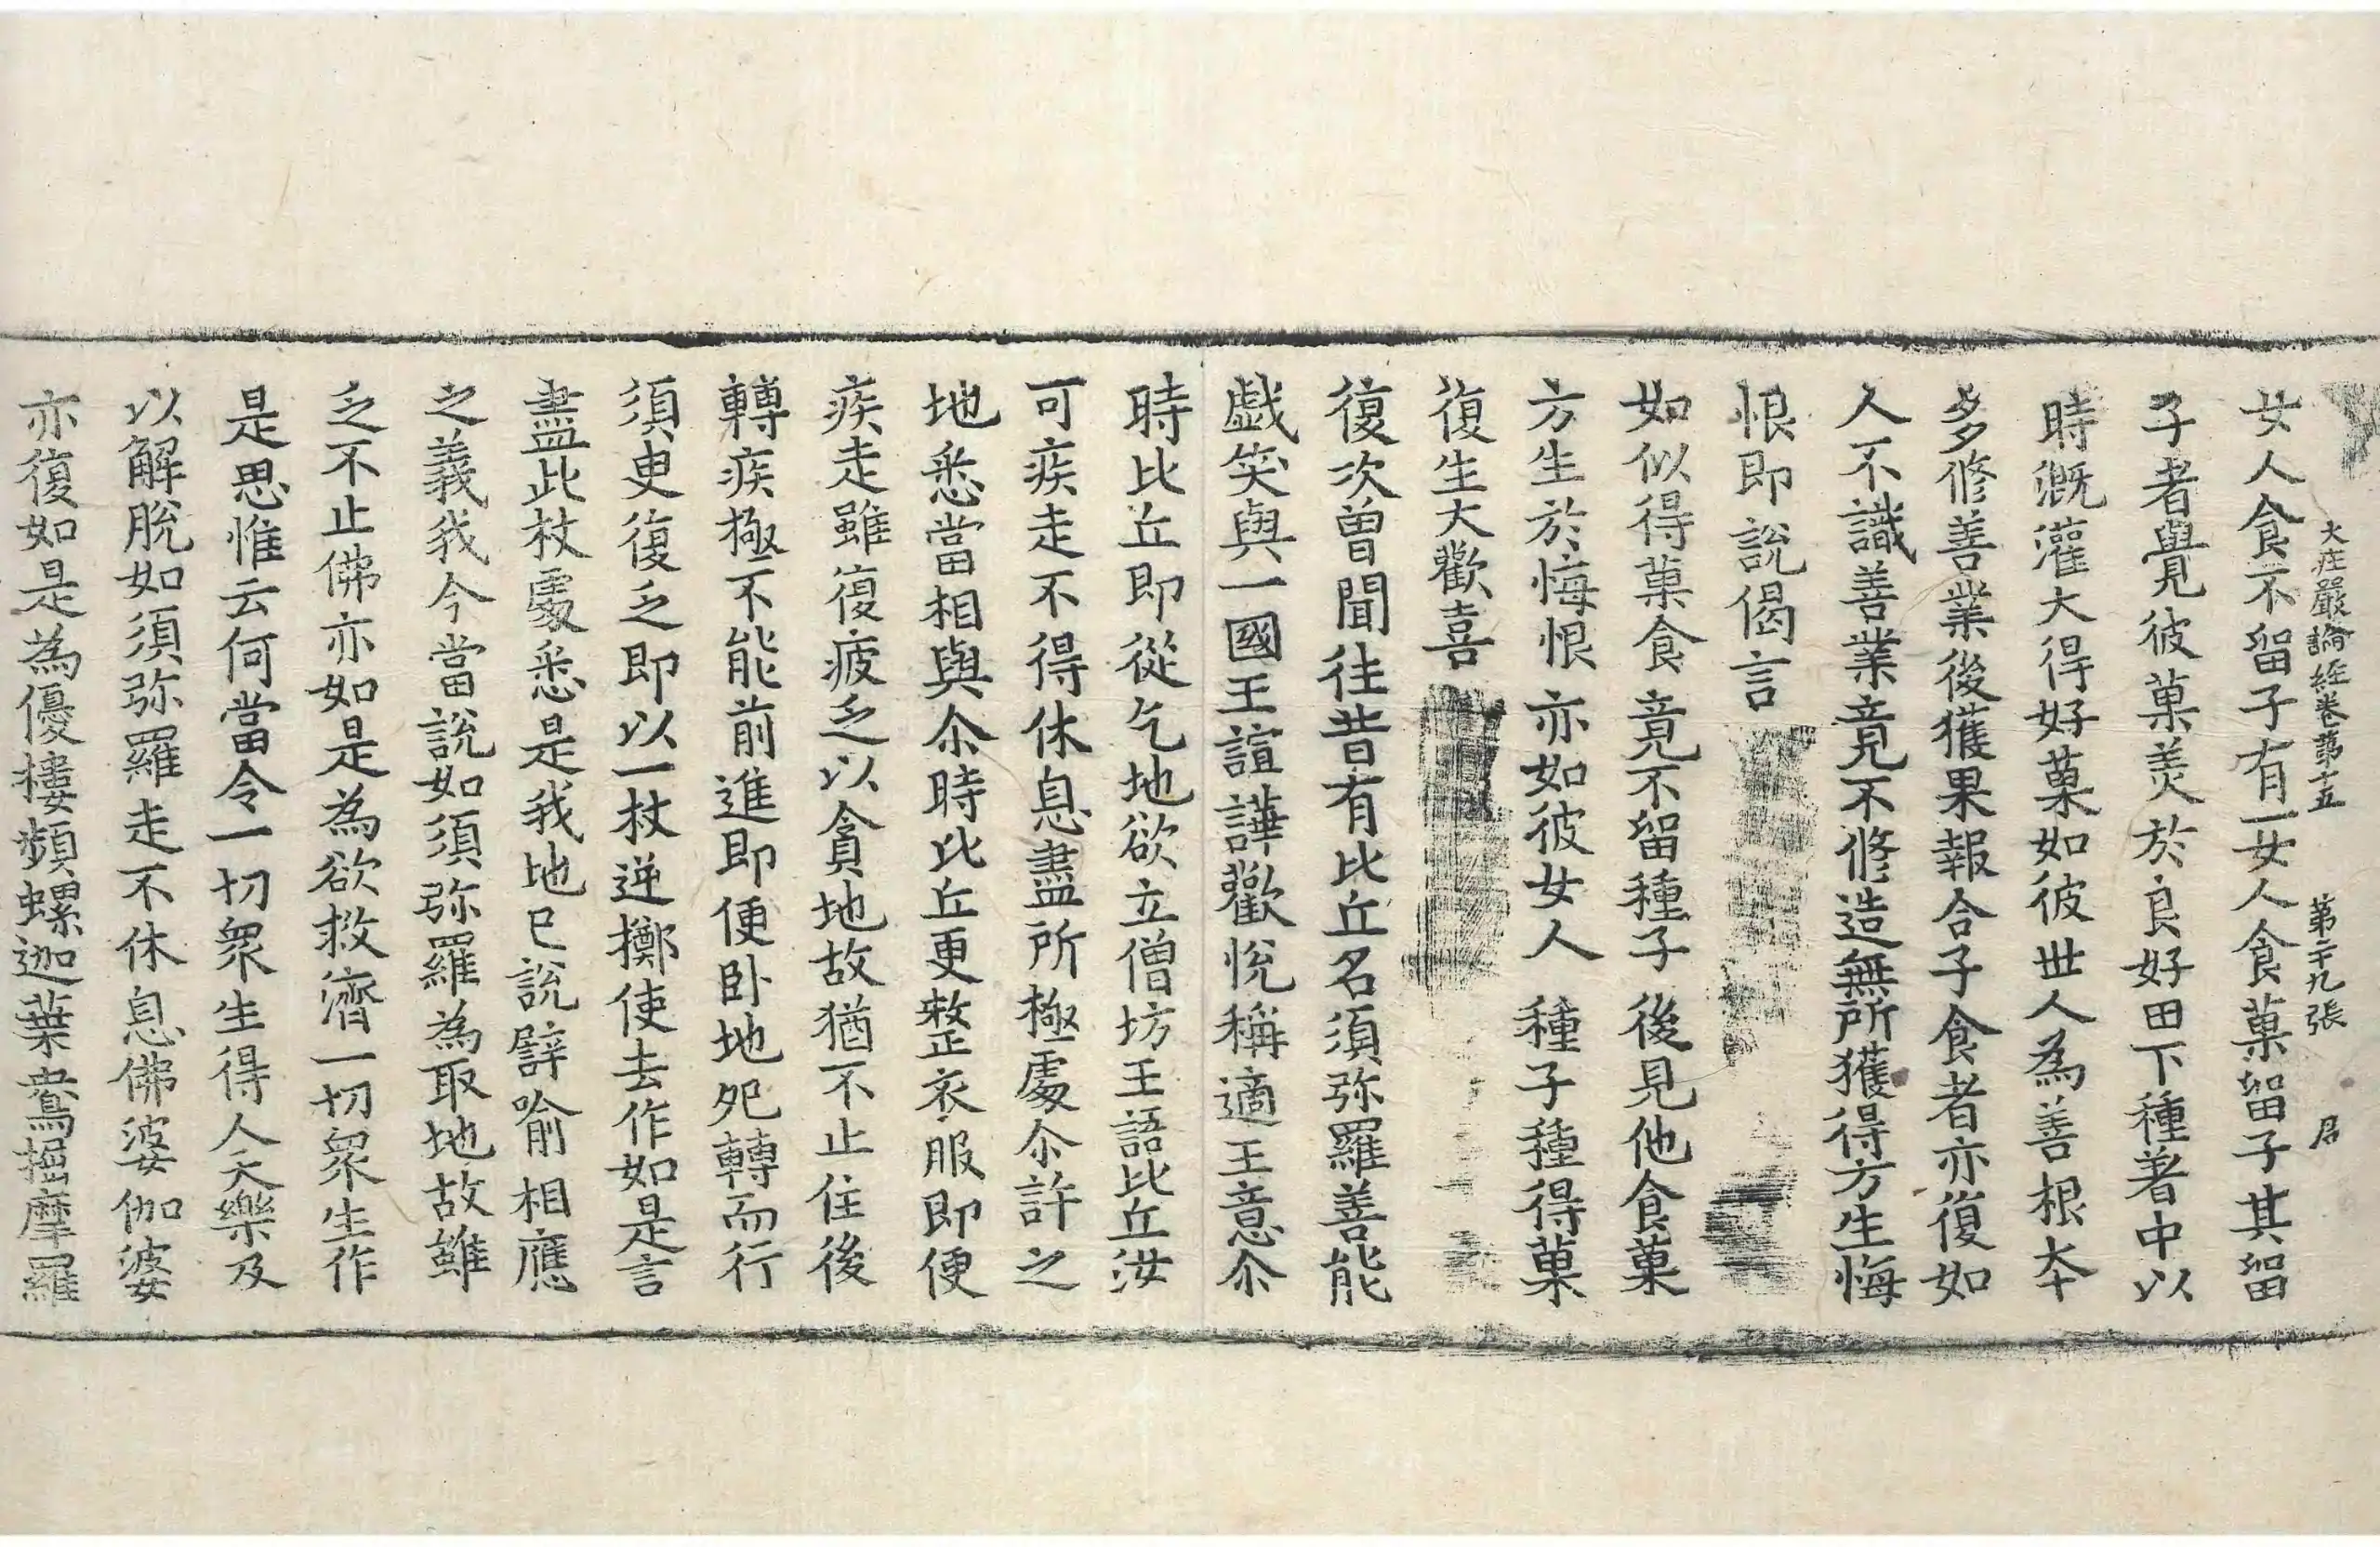 大庄嚴論経卷苐十五　第二十九張　君
女人食不留子有一女人食菓留子其留
子者覺彼菓羙於良好田下種著中以
時溉灌大得好菓如彼世人為善根夲
多修善業後獲果報合子食者亦復如
人不識善業竟不修造無所獲得方生悔
恨即說偈言
如似得菓食　竟不留種子　後見他食菓
方生於悔恨　亦如彼女人　種子種得菓
復生大歡喜
復次曽聞往昔有比丘名須弥羅善能
戯笑與一國王諠譁歡悅稱適王意尒
時比丘即從乞地欲立僧坊王語比丘汝
可疾走不得休息盡所極處尒許之
地悉當相與尒時比丘更整衣服即便
疾走雖復疲乏以貪地故猶不止住後
轉疾極不能前進即便卧地宛轉而行
須臾復乏即以一杖逆擲使去作如是言
盡此杖處悉是我地已說譬喻相應
之義我今當說如須弥羅為取地故雖
乏不止佛亦如是為欲救濟一切衆生作
是思惟云何當令一切衆生得人天樂及
以解脫如須弥羅走不休息佛婆伽婆
亦復如是為優樓頻螺迦葉鴦掘摩羅